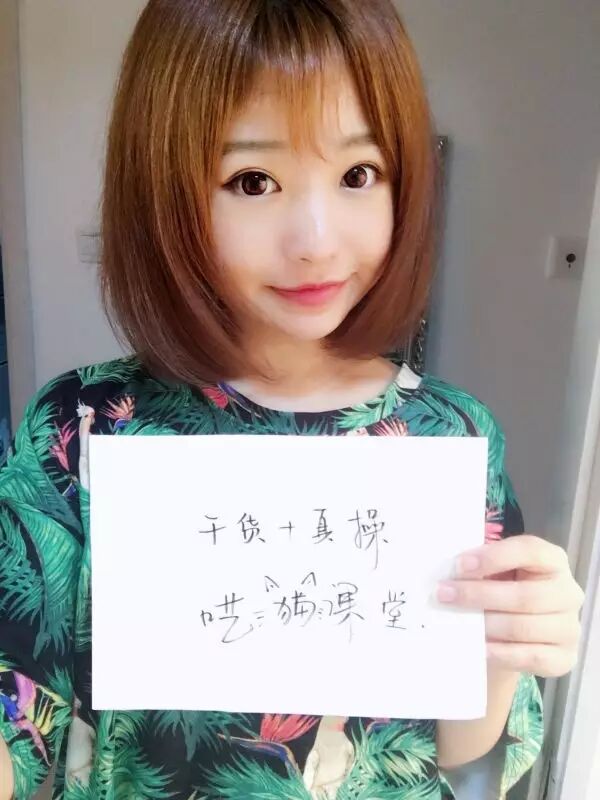 干货+真操
呓猫课堂.